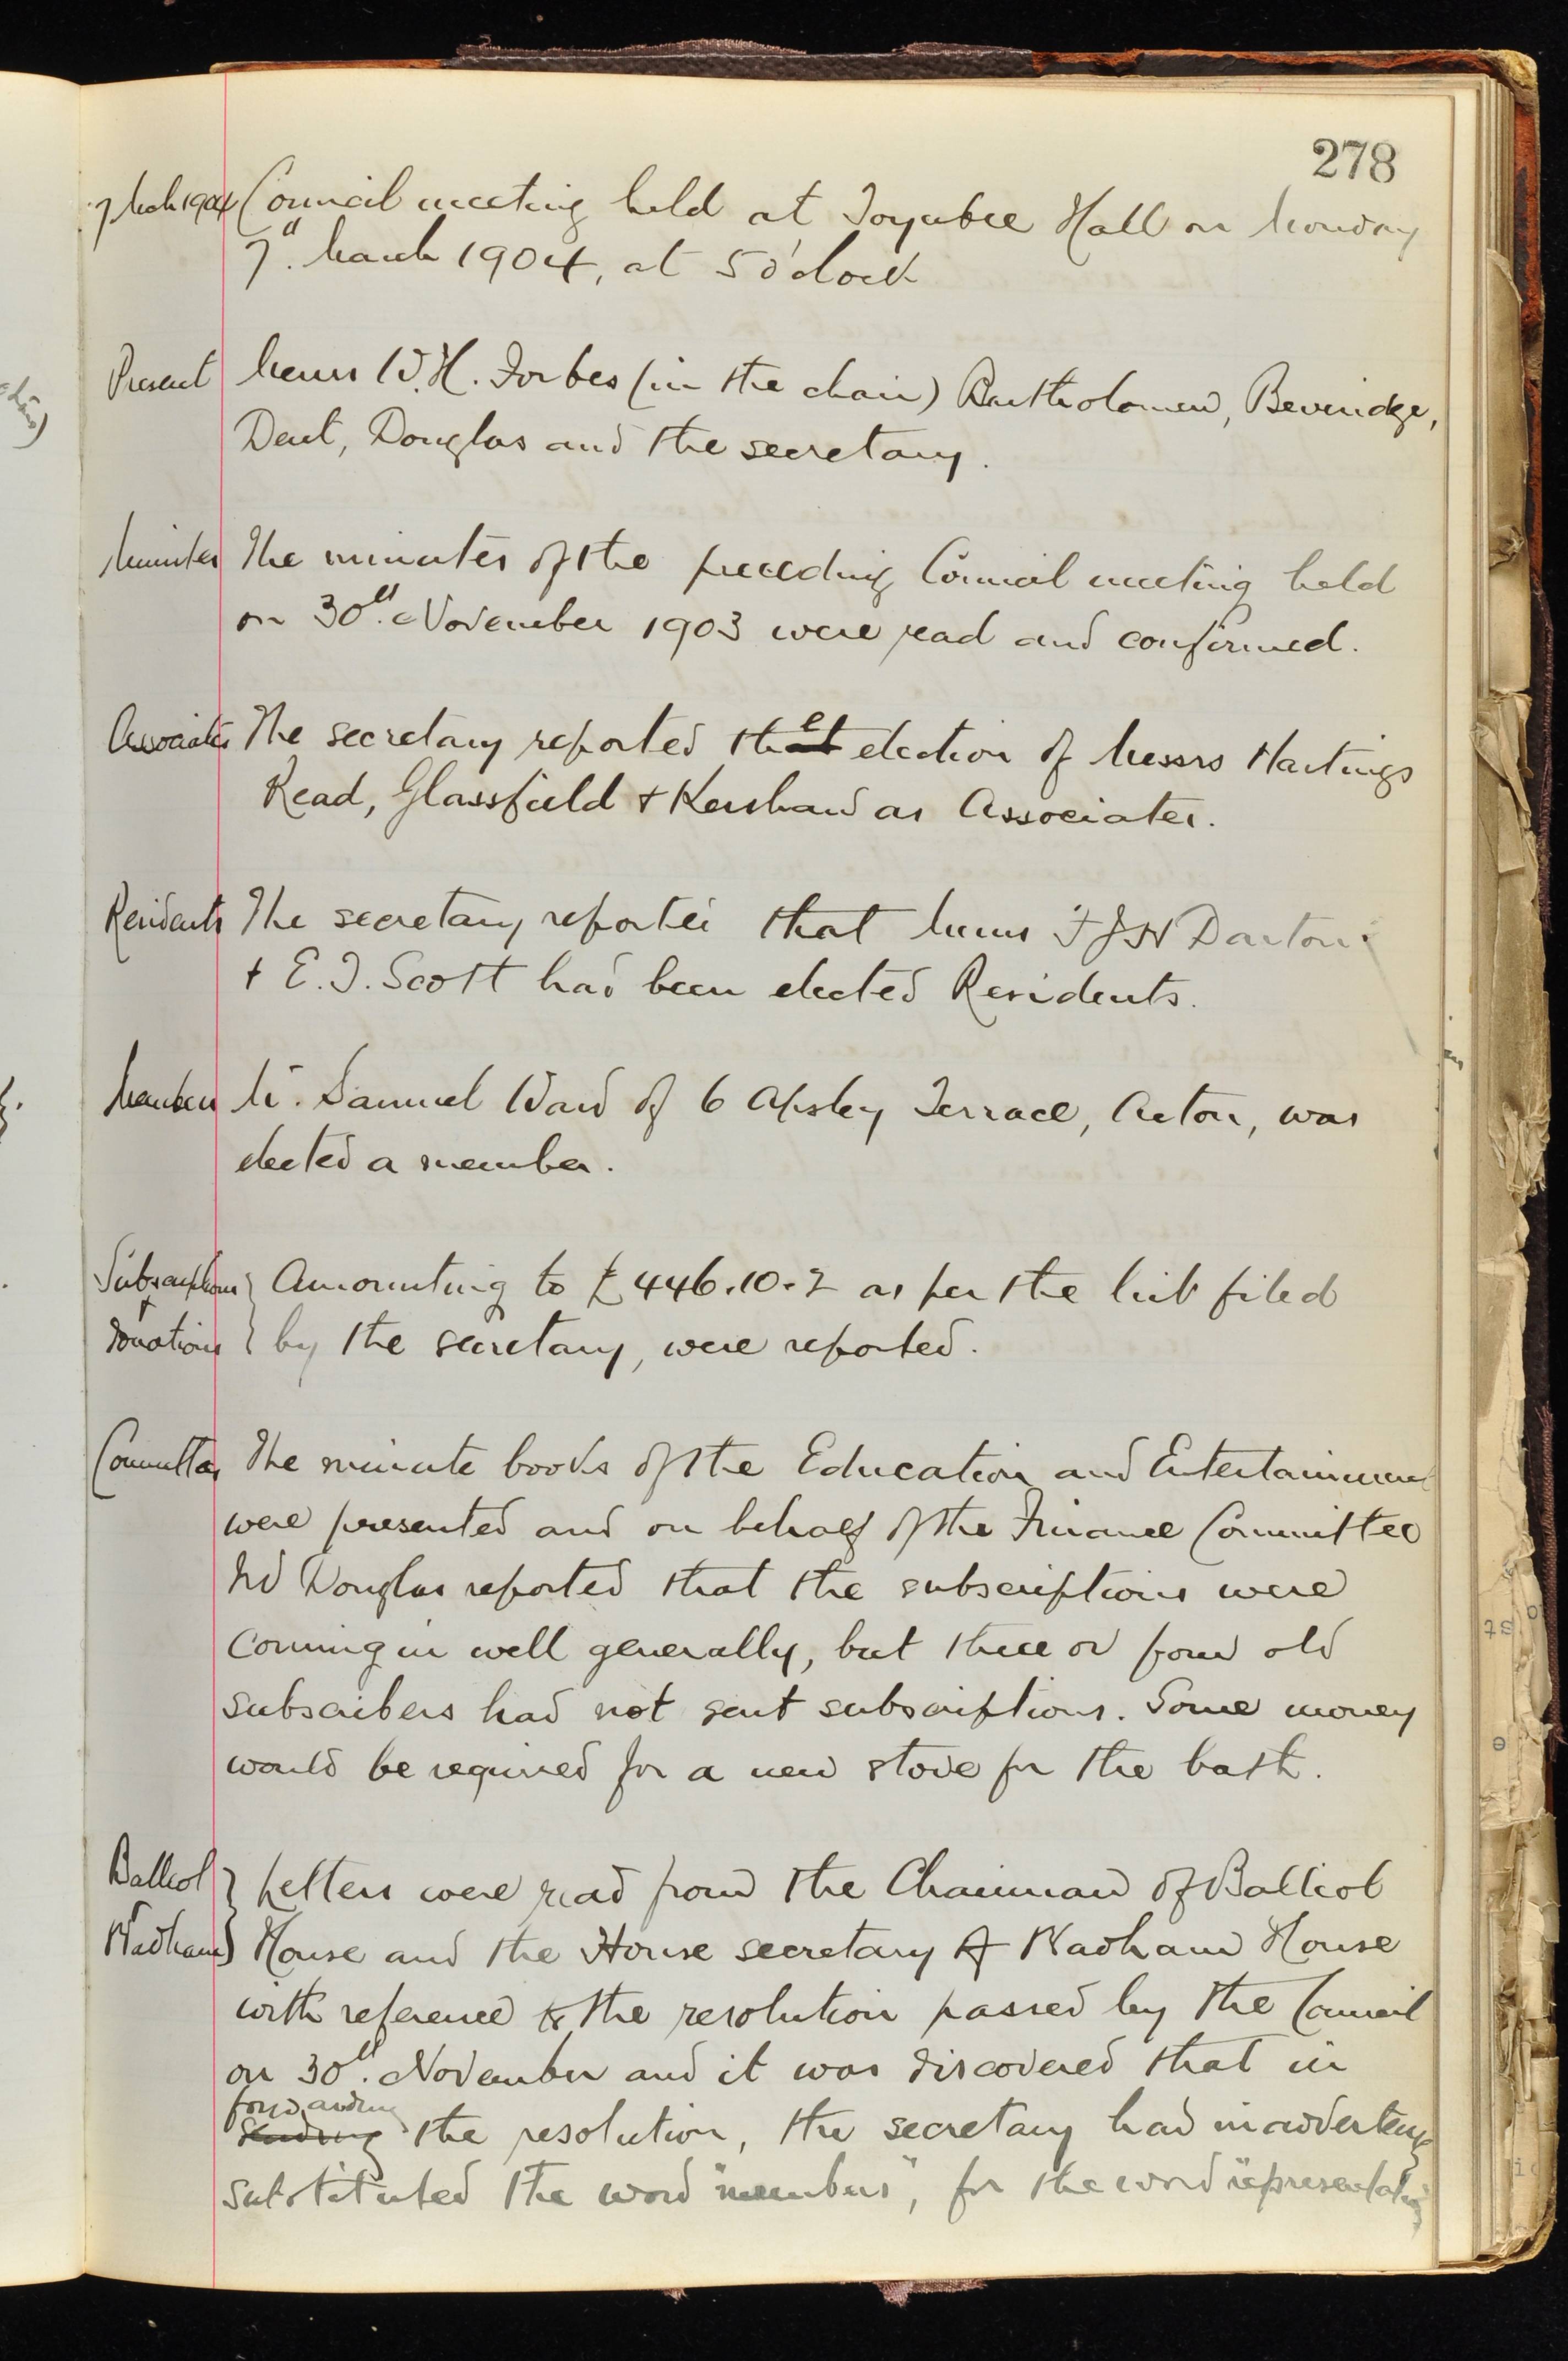 278
7 March 1904 Council meeting held at Toynbee Hall on Monday
7th. March 1904, at 5 o'clock
Present Messrs W. H. Forbes (in the chair) Bartholomew, Beveridge,
Dent, Douglas and the secretary.
Minutes The minutes of the preceding Council meeting held
on 30th. November 1903 were read and confirmed.
Associates The secretary reported the election of Messrs Hastings
Read, Glassfield + Kershaw as Associates.
Residents The secretary reported that Messrs F J H Darton
+ E. J. Scott had been elected Residents.
Members Mr. Samuel Ward of 6 Apsley Terrace, Acton, was
elected a member.
Subscriptions } Amounting to £446.10.2 as per the list filed
+
Donations } by the secretary, were reported.
Committees The minute books of the Education and Entertainment
were presented and on behalf of the Finance Committee
Mr Douglas reported that the subscriptions were
coming in well generally, but three or four old
subscribers had not sent subscriptions. Some money
would be required for a new stove for the bath.
Balliol } Letters were read from the Chairman of Balliol
+
Wadham } House and the House secretary of Wadham House
with reference to the resolution passed by the Council
on 30th. November and it was discovered that in
forwarding
sending the resolution, the secretary had inadvertently
substituted the word "members", for the word "representatives